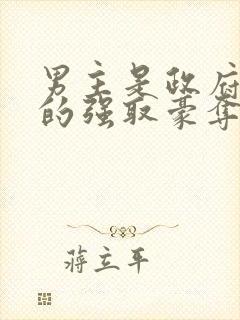 男主是政府
的强取豪夺
蒋立平